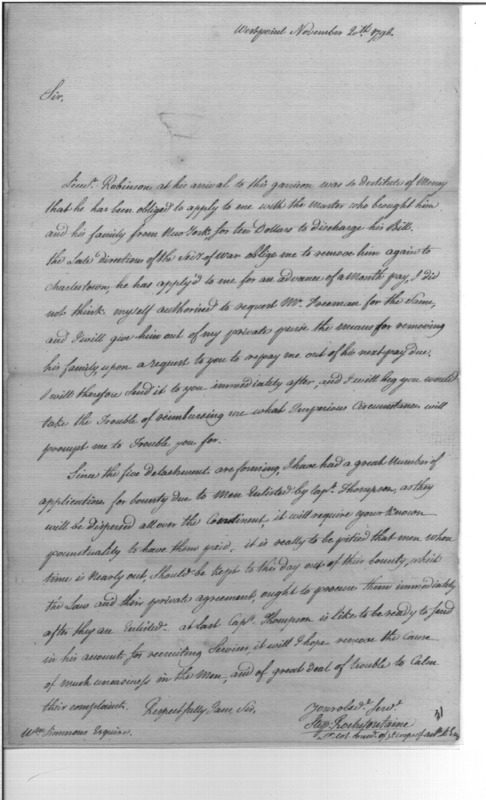 Westpoint November 20th 1796.
Sir,
Lieut. Robinson, at his arrival to this garrison was so destitute of Money
that he has been obliged to apply to me with the Master who brought him
and his family from New York, for ten Dollars to discharge his Bill.
the Late direction of the Secy. of War oblige me to remove him again to
Charlestown, he has apply'd to me for an advance of a Month pay, I did
not think myself authorised to request Mr. Freeman for the Same,
and I will give him out of my private purse the means for removing
his family, upon a request to you to repay me out of his next pay due.
I will therefore Send it to you immediately after, and I will beg you would
take the Trouble of reimbursing me what Imperious Circumstances will
prompt me to Trouble you for.
Since the five detachment are forming, I have had a great Number of
application for bounty due to Men Enlisted by Capt. Thompson, as they
will be dispersed all over the Continent, it will require your Known
punctuality to have them paid, it is really to be pitied that men whose
time is Nearly out, Should be Kept to this day out of their bounty, which
the Law and their private agreement ought to procure them immediately
after they are Enlisted. at last Capt. Thompson is like to be ready to Send
in his account for recruiting Service, it will I hope remove the cause
of much uneasiness in the Men, and of great Deal of trouble to Calm
their complaints. Respectfully I am, Sir,
Your obedt. Servt.
Step. Rochefontaine
Lt. Col. Commdt. of
Wm. Simmons Esquire.
31